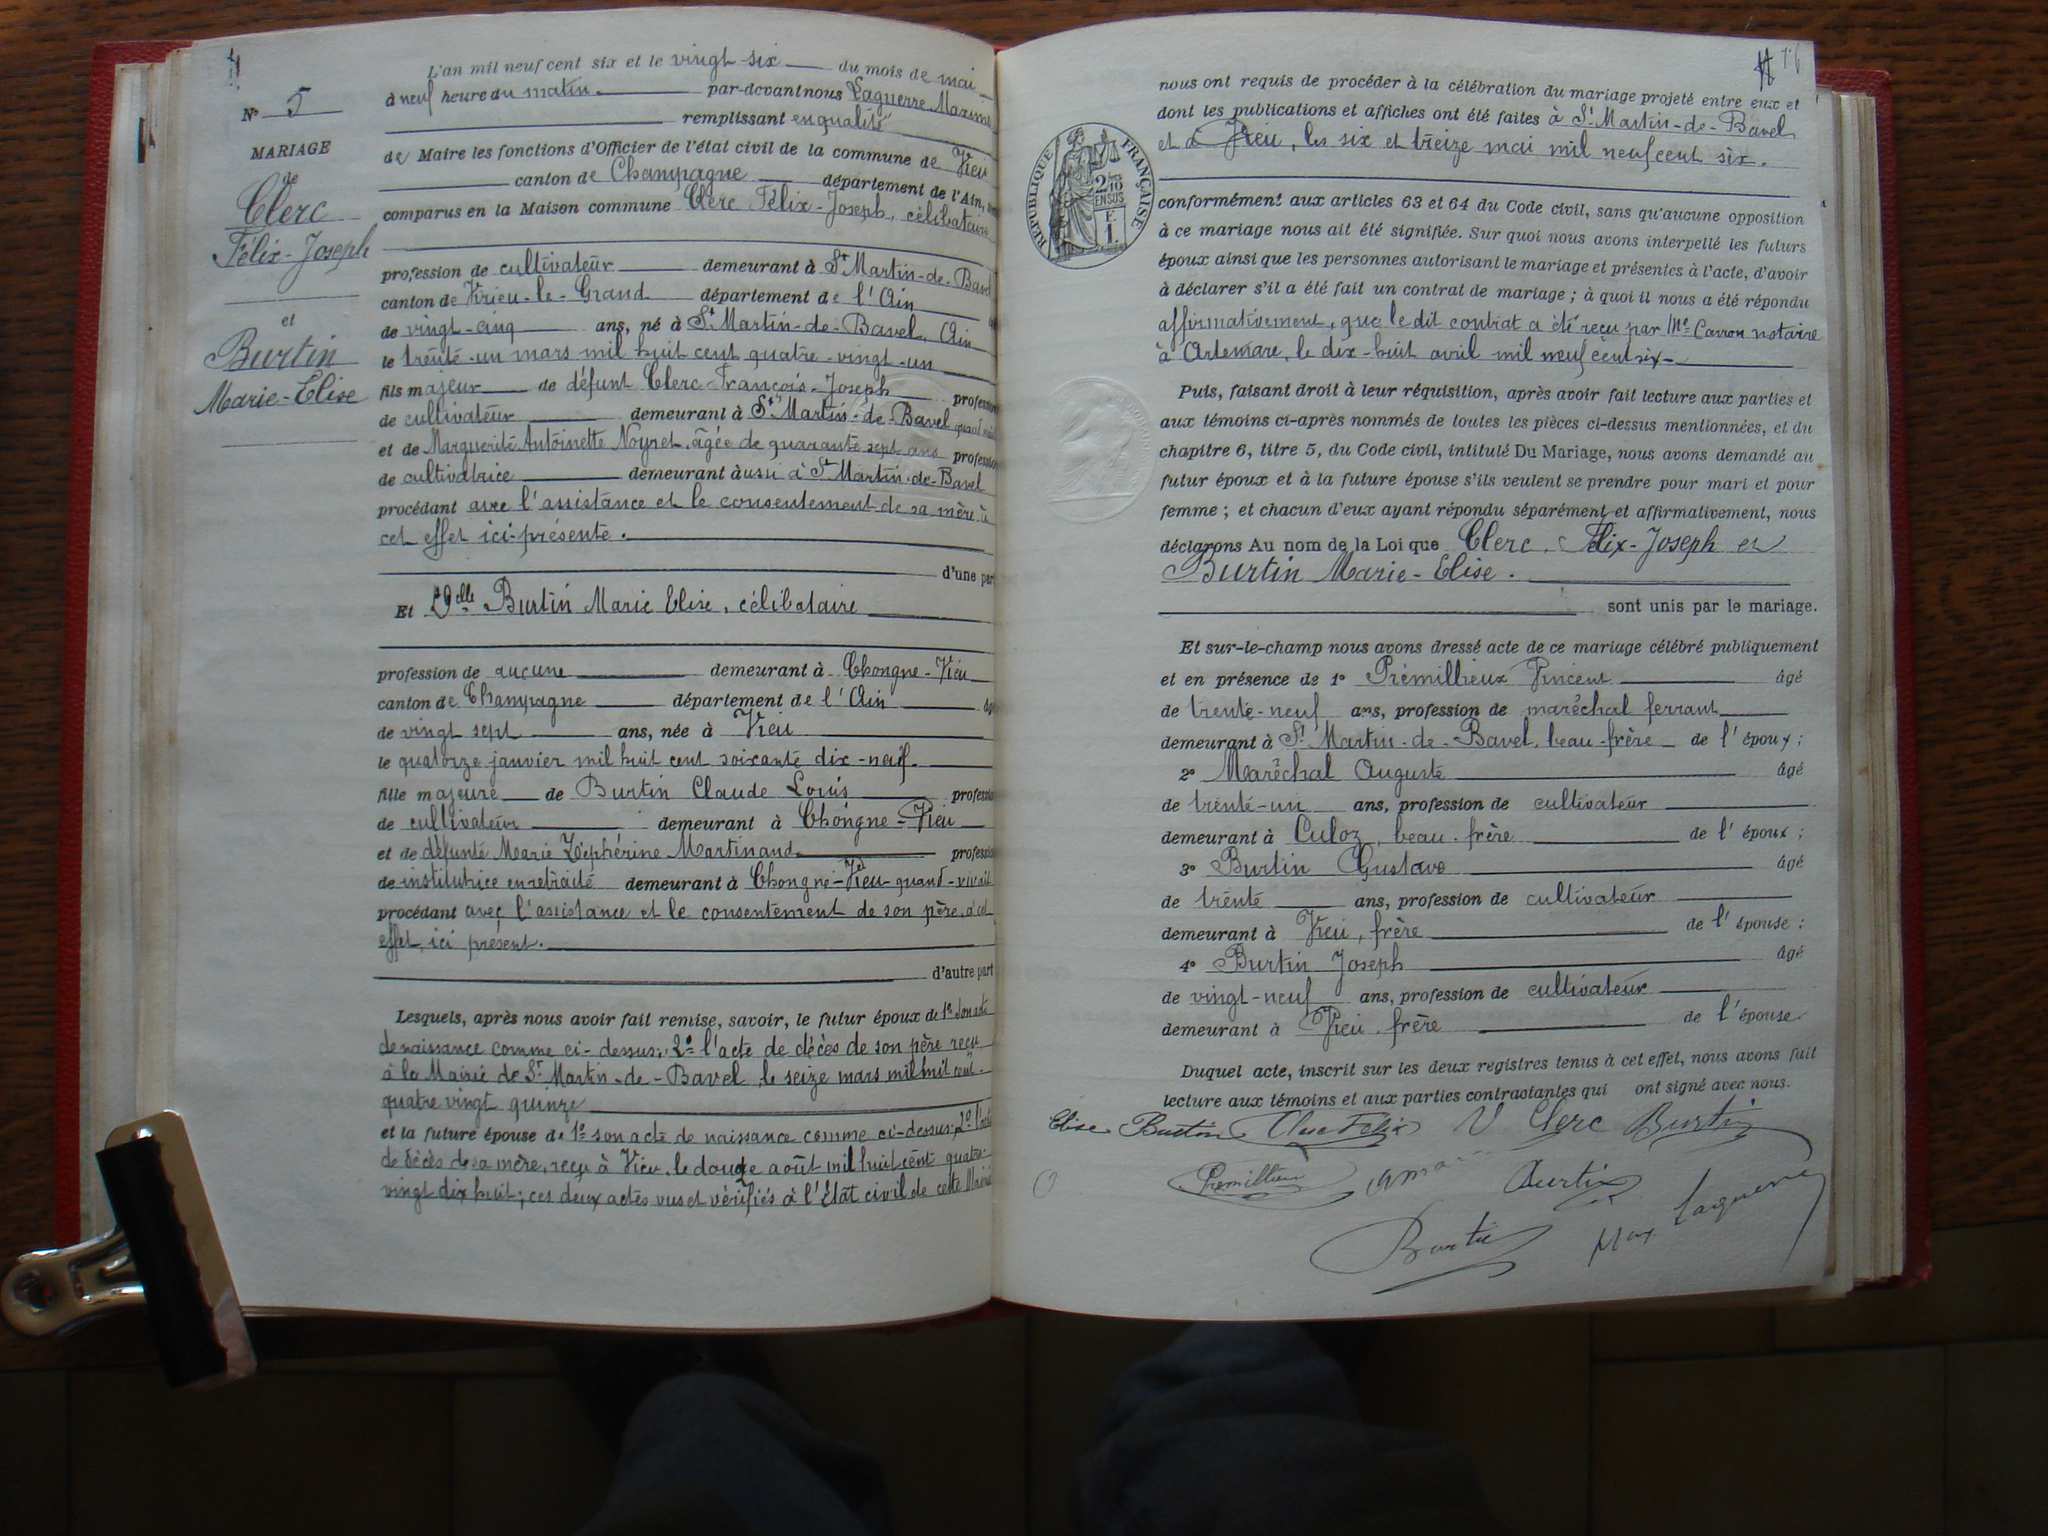 L'an mil neuf cent six et le vingt-six du mois de mai
à neuf heure du matin par-devant nous Laguerre Maxime
remplissant en qualité
de Maire les fonctions d'Officier de l'état civil de la commune de Vieu
canton de Champagne département de l'Ain,
comparus en la Maison commune Clerc Félix-Joseph, célibataire
profession de cultivateur demeurant à St Martin-de-Bavel
canton de Virieu-le-Grand département de l'Ain
de vingt-cinq ans, né à St Martin-de-Bavel, Ain
le trente-un mars mil huit cent quatre-vingt-un
fils majeur de défunt Clerc François-Joseph profession
de cultivateur demeurant à St Martin-de-Bavel quand
et de Marguerite Antoinette Noyret, âgée de quarante sept ans profession
de cultivatrice demeurant aussi à St Martin-de-Bavel
procédant avec l'assistance et le consentement de sa mère à
cet effet ici-présente.
d'une part
Et Delle Burtin Marie Elise, célibataire
profession de aucune demeurant à Chongne-Vieu
canton de Champagne département de l'Ain âgée
de vingt sept ans, née à Vieu
le quatorze janvier mil huit cent soixante dix-neuf.
fille majeure de Burtin Claude Louis profession
de cultivateur demeurant à Chongne-Vieu
et de défunte Marie Zéphérine Martinand profession
de institutrice en retraite demeurant à Chongne-Vieu quand-vivait
procédant avec l'assistance et le consentement de son père, à cet
effet, ici présent.
d'autre part
Lesquels, après nous avoir fait remise, savoir, le futur époux de 1º son acte
de naissance comme ci-dessus; 2º l'acte de décès de son père reçu
à la Mairie de St Martin-de-Bavel, le seize mars mil huit cent
quatre vingt quinze
et la future épouse de 1º son acte de naissance comme ci-dessus; 2º l'acte
de décès de sa mère, reçu à Vieu, le douze août mil huit cent quatre-
vingt dix huit; ces deux actes vus et vérifiés à l'État civil de cette Mairie
Nº 5
MARIAGE
de
Clerc
Félix-Joseph
et
Burtin
Marie-Elise
76
nous ont requis de procéder à la célébration du mariage projeté entre eux et
dont les publications et affiches ont été faites à St Martin-de-Bavel
et à Vieu, les six et treize mai mil neuf cent six.
RÉPUBLIQUE FRANÇAISE
2/10
EN SUS
1 F.
conformément aux articles 63 et 64 du Code civil, sans qu'aucune opposition
à ce mariage nous ait été signifiée. Sur quoi nous avons interpellé les futurs
époux ainsi que les personnes autorisant le mariage et présentes à l'acte, d'avoir
à déclarer s'il a été fait un contrat de mariage; à quoi il nous a été répondu
affirmativement, que le dit contrat a été reçu par Me Carron notaire
à Artemare, le dix-huit avril mil neuf cent six
Puis, faisant droit à leur réquisition, après avoir fait lecture aux parties et
aux témoins ci-après nommés de toutes les pièces ci-dessus mentionnées, et du
chapitre 6, titre 5, du Code civil, intitulé Du Mariage, nous avons demandé au
futur époux et à la future épouse s'ils veulent se prendre pour mari et pour
femme; et chacun d'eux ayant répondu séparément et affirmativement, nous
déclarons Au nom de la Loi que Clerc, Félix-Joseph et
Burtin Marie-Elise.
sont unis par le mariage.
Et sur-le-champ nous avons dressé acte de ce mariage célébré publiquement
et en présence de 1º Prémillieux Vincent âgé
de trente-neuf ans, profession de maréchal ferrant
demeurant à St Martin-de-Bavel, beau-frère de l'époux;
2º Maréchal Auguste âgé
de trente-un ans, profession de cultivateur
demeurant à Culoz, beau-frère de l'époux;
3º Burtin Gustave âgé
de trente ans, profession de cultivateur
demeurant à Vieu, frère de l'épouse;
4º Burtin Joseph âgé
de vingt-neuf ans, profession de cultivateur
demeurant à Vieu, frère de l'épouse
Duquel acte, inscrit sur les deux registres tenus à cet effet, nous avons fait
lecture aux témoins et aux parties contractantes qui ont signé avec nous.
Elise Burtin Clerc Felix V Clerc Burtin
Prémillieux Burtin
Burtin Max Laguerre